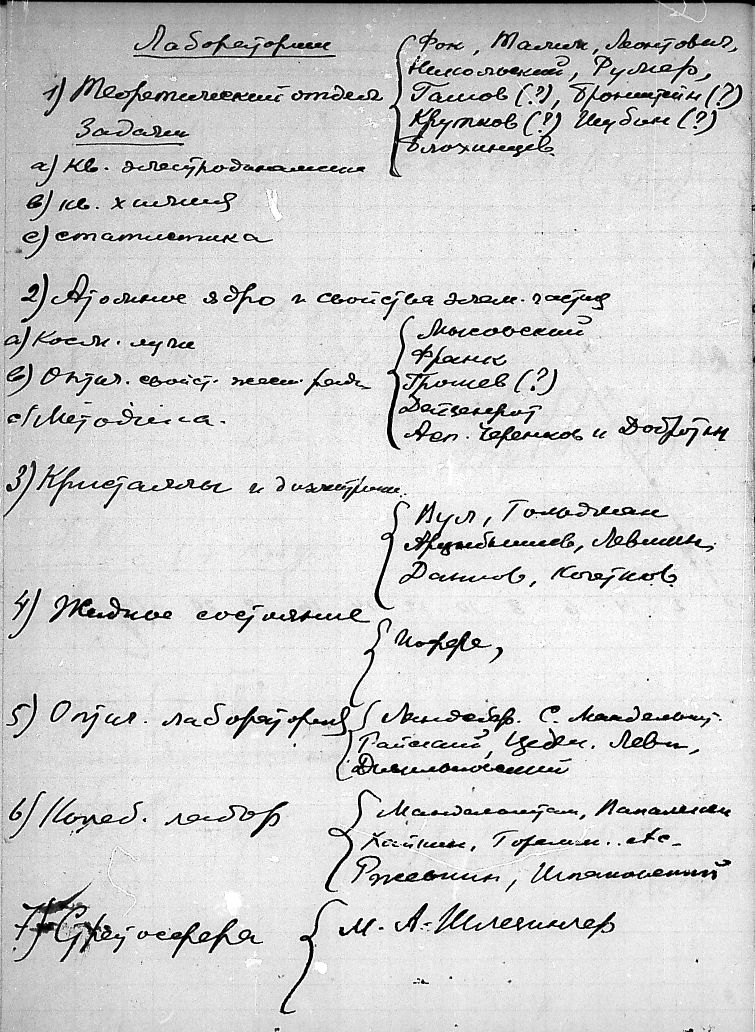 Лаборатории
1) Теоретический отдел
Фок, Тамм, Леонтович,
Никольский, Румер,
Гамов (?), Бронштейн (?)
Крутков (?) Шубин (?)
Блохинцев
Задачи
a) кв. электродинамика
b) кв. химия
c) статистика
2) Атомное ядро и свойства элем. частиц
a) Косм. лучи
b) Оптич. свойст. жест. рад.
c) Методика.
Мысовский
Франк
Грошев (?)
Асп. Черенков и Добротин
3) Кристаллы и диэлектрики.
Вул, Гольдман
Арцыбышев, Левшин,
Данков, Кочетков
4) Жидкое состояние
Иоффе,
5) Оптич. лаборатория
Ландсбер. С. Мандельшт.
Райский, Леви,
6) Колеб. лабор
Мандельштам, Папалекси
Хайкин, Горелик
Ржевкин, Шпаковский
7) Стратосфера
М. А. Шлезингер